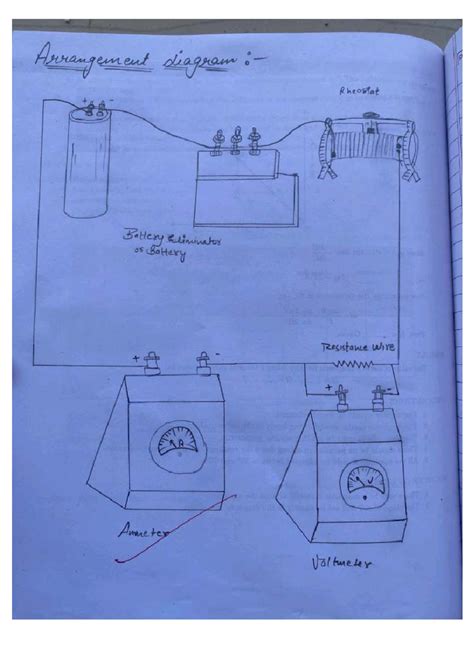 Arrangement diagram :-
Rheostat
+ -
Battery Eliminator
or Battery
Resistance wire
+ -
+ -
A
V
Ammeter
Voltmeter